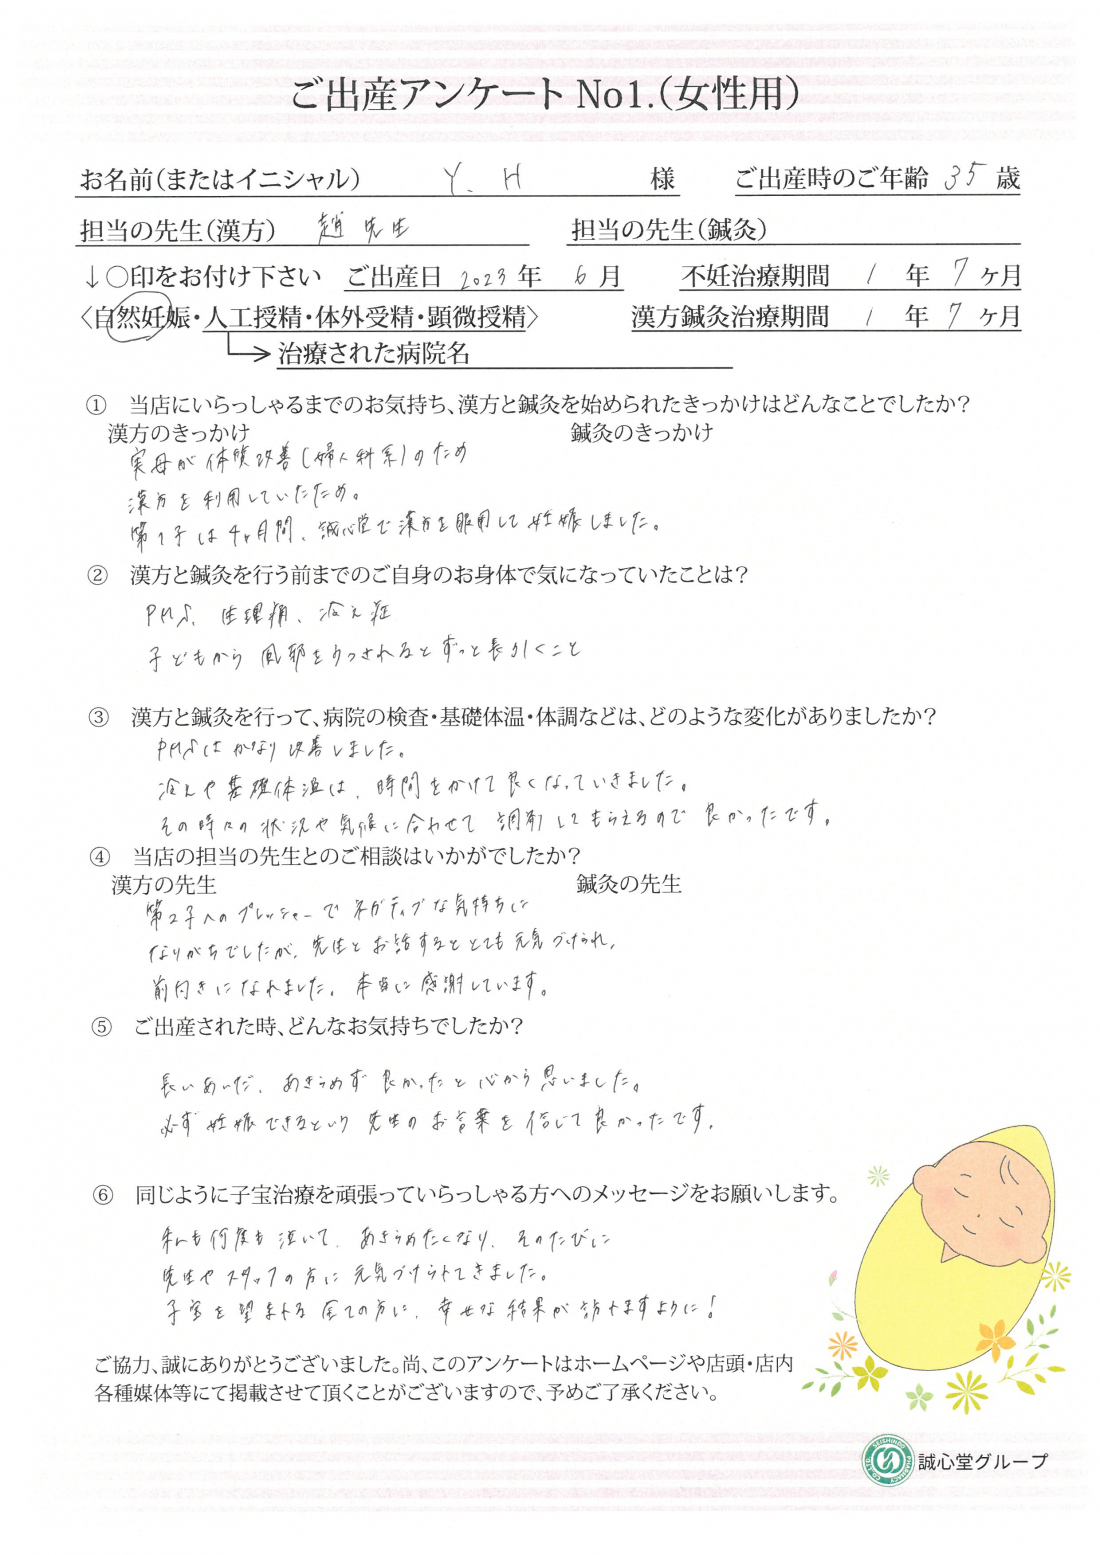 ご出産アンケート No1.(女性用)
お名前(またはイニシャル) Y. H 様 ご出産時のご年齢 35 歳
担当の先生(漢方) 趙先生 担当の先生(鍼灸)
↓○印をお付け下さい ご出産日 2023 年 6 月 不妊治療期間 1 年 7 ヶ月
〈自然妊娠・人工授精・体外受精・顕微授精〉 漢方鍼灸治療期間 1 年 7 ヶ月
治療された病院名
① 当店にいらっしゃるまでのお気持ち、漢方と鍼灸を始められたきっかけはどんなことでしたか?
漢方のきっかけ 鍼灸のきっかけ
実母が体質改善(婦人科系)のため
漢方を利用していたため。
第1子は4ヶ月間、誠心堂で漢方を服用して妊娠しました。
② 漢方と鍼灸を行う前までのご自身のお身体で気になっていたことは?
PMS、生理痛、冷え症
子どもから風邪をうつされるとずっと長引くこと
③ 漢方と鍼灸を行って、病院の検査・基礎体温・体調などは、どのような変化がありましたか?
PMSはかなり改善しました。
冷えや基礎体温は、時間をかけて良くなっていきました。
その時々の状況や気候に合わせて調剤してもらえるので良かったです。
④ 当店の担当の先生とのご相談はいかがでしたか?
漢方の先生 鍼灸の先生
第2子へのプレッシャーでネガティブな気持ちに
なりがちでしたが、先生とお話するととても元気づけられ、
前向きになれました。本当に感謝しています。
⑤ ご出産された時、どんなお気持ちでしたか?
長いあいだ、あきらめず良かったと心から思いました。
必ず妊娠できるという先生のお言葉を信じて良かったです。
⑥ 同じように子宝治療を頑張っていらっしゃる方へのメッセージをお願いします。
私も何度も泣いて、あきらめたくなり、そのたびに
先生やスタッフの方に元気づけられてきました。
子宝を望まれる全ての方に、幸せな結果が訪れますように!
ご協力、誠にありがとうございました。尚、このアンケートはホームページや店頭・店内
各種媒体等にて掲載させて頂くことがございますので、予めご了承ください。
誠心堂グループ